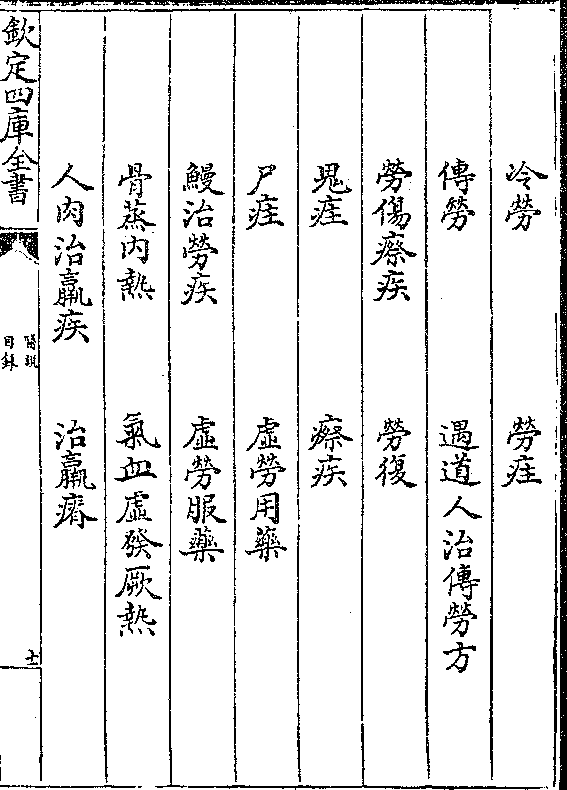 冷勞　勞疰
傳勞　遇道人治傳勞方
勞傷瘵疾　勞復
鬼疰　瘵疾
尸疰　虛勞用藥
鰻治勞疾　虛勞服藥
骨蒸内熱　氣血虛發厥熱
人肉治羸疾　治羸瘠
欽定四庫全書
醫說
目錄
十